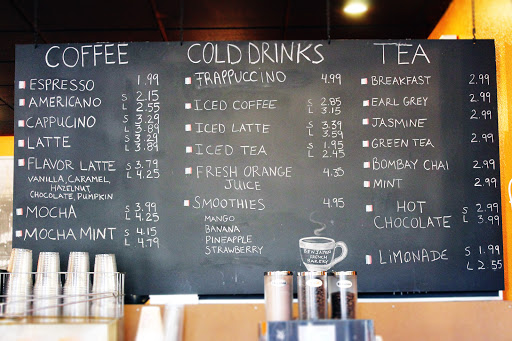 COFFEE
ESPRESSO 1.99
AMERICANO S 2.15
L 2.55
CAPPUCINO S 3.29
L 3.89
LATTE S 3.29
L 3.89
FLAVOR LATTE S 3.79
VANILLA, CARAMEL, L 4.25
HAZELNUT,
CHOCOLATE, PUMPKIN
MOCHA S 3.99
L 4.25
MOCHA MINT S 4.15
L 4.79
COLD DRINKS
FRAPPUCCINO 4.99
ICED COFFEE S 2.85
L 3.15
ICED LATTE S 3.39
L 3.59
ICED TEA S 1.95
L 2.45
FRESH ORANGE 4.35
JUICE
SMOOTHIES 4.95
MANGO
BANANA
PINEAPPLE
STRAWBERRY
BENJAMIN
FRENCH
BAKERY
TEA
BREAKFAST 2.99
EARL GREY 2.99
JASMINE 2.99
GREEN TEA 2.99
BOMBAY CHAI 2.99
MINT 2.99
HOT S 2.99
CHOCOLATE L 3.99
LIMONADE S 1.99
L 2.55